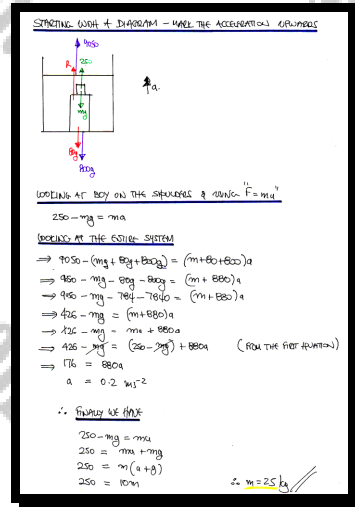 STARTING WITH A DIAGRAM - MARK THE ACCELERATION UPWARDS
9050
R
250
a
mg
80g
800g
LOOKING AT BOY ON THE SHOULDERS & USING "F = ma"
250 - mg = ma
LOOKING AT THE ENTIRE SYSTEM
⇒ 9050 - (mg + 80g + 800g) = (m + 80 + 800)a
⇒ 9050 - mg - 80g - 800g = (m + 880)a
⇒ 9050 - mg - 784 - 7840 = (m + 880)a
⇒ 426 - mg = (m + 880)a
⇒ 426 - mg = ma + 880a
⇒ 426 - mg = (250 - mg) + 880a (FROM THE FIRST EQUATION)
⇒ 176 = 880a
a = 0.2 ms⁻²
∴ FINALLY WE HAVE
250 - mg = ma
250 = ma + mg
250 = m(a + g)
250 = 10m ∴ m = 25 kg